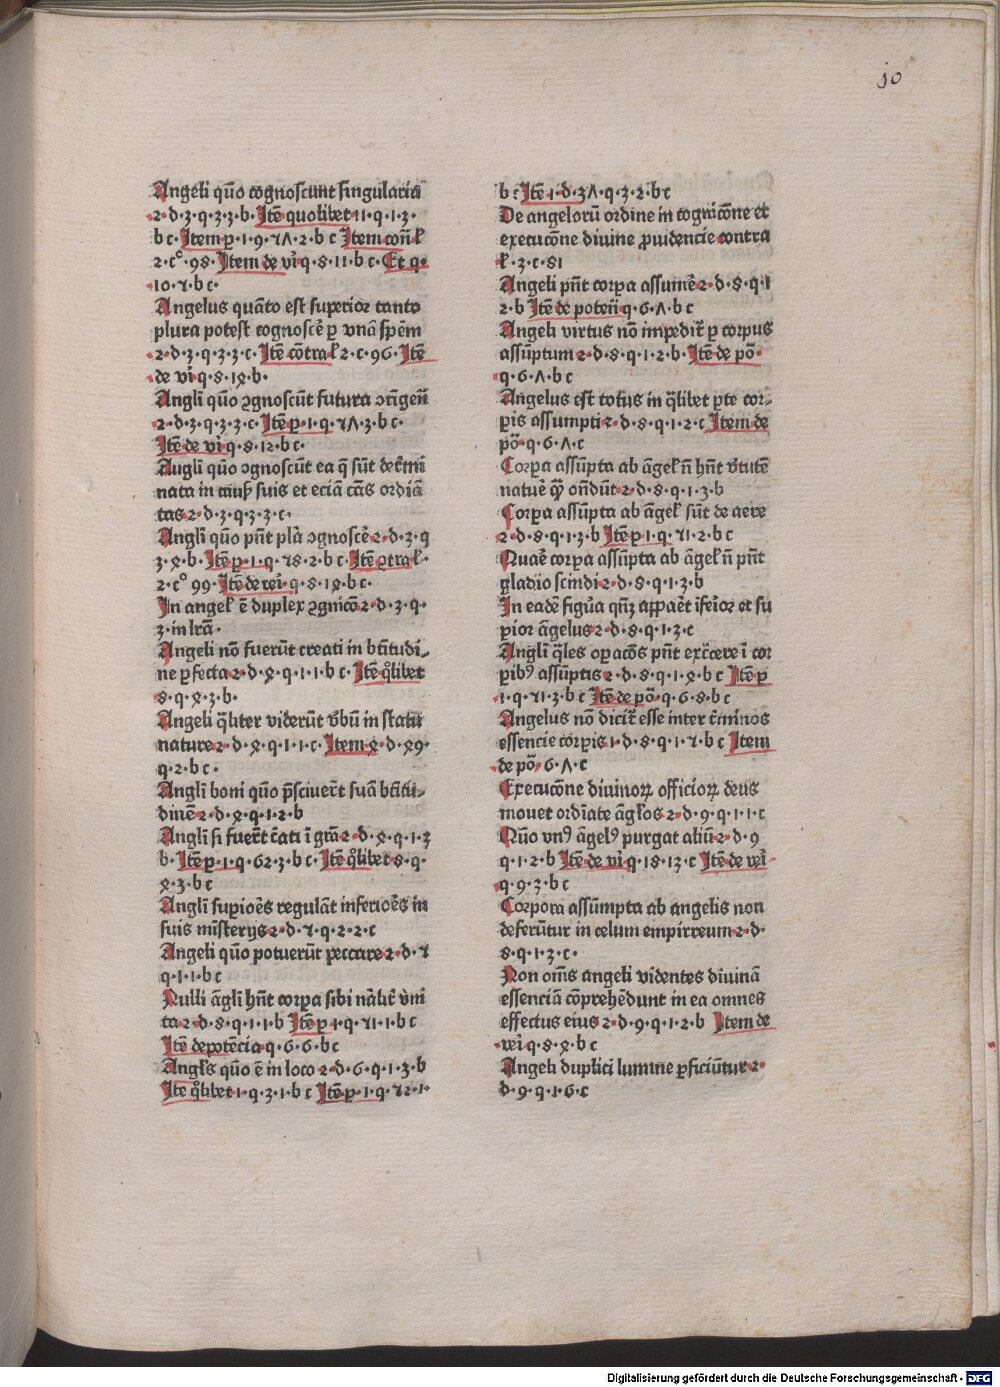 10
Angeli quo cognoscunt singularia
2·d·3·q·3·3·b· Itē quolibet 11·q·1·3·
b c· Item ꝑ·1·q·ɿΛ·2·b c Item con̄ ł
2·c°·98· Item de vi̅ q·8·11·b c· Et q·
10·ɿ·b c·
Angelus quāto est superior tanto
plura potest cognoscē ꝑ vnā spēm
2·d·3·q·3·3·c· Itē cōtra ł 2·c·96· Itē
de vi̅ q·8·10·b·
Angli̅ quō ꝯgnoscūt futura ꝯtīgen̄
2·d·3·q·3·3·c· Itē ꝑ·1·q·ɿΛ·3·b c·
Itē de vi̅ q·8·12·b c·
Angli̅ quō ꝯgnoscūt ea q̄ sūt det̄mi
nata in cauß suis et eciā cās ordīa
tas 2·d·3·q·3·3·c·
Angli̅ quō pn̄t plā ꝯgnoscē 2·d·3·q
3·ꝝ·b· Itē ꝑ·1·q·ɿ8·2·b c· Itē ꝯtra ł·
2·c° 99· Itē de vei̅ q·8·1ꝝ·b c·
In angeł ē duplex ꝯgnicō 2·d·3·q·
3·in lr̄a·
Angeli nō fuerūt creati in btītudi
ne ꝑfecta 2·d·ꝝ·q·1·1·b c· Itē q̊libet
8·q·ꝝ·3·b·
Angeli q̄liter viderūt v̄bū in statu
nature 2·d·ꝝ·q·1·1·c· Item ꝝ·d·ꝝ9·
q·2·b c·
Angli̅ boni quō p̄sciuer̄t suā btītu
dinē 2·d·ꝝ·q·1·2·b
Angli̅ si fuer̄t c̄ati ī grā 2·d·ꝝ·q·1·3
b· Itē ꝑ·1·q·62·3·b c· Itē q̊libet 8·q·
ꝝ·3·b c
Angli̅ supioēs regulāt inferioēs in
suis mīsterijs 2·d·ɿ·q·2·2·c
Angeli quō potuerūt peccare 2·d·ɿ
q·1·1·b c
Nulli āgli̅ hn̄t corꝑa sibi nālit̄ v̄ni
ta 2·d·8·q·1·1·b Itē ꝑ 1·q·ɿ1·1·b c
Itē depotēcia q·6·6·b c
Angłs quō ē in loco 2·d·6·q·1·3·b
Ite q̊libet 1·q·3·1·b c Itē ꝑ·1·q·ɿ2·1·
b : Itē 1·d·3Λ·q·3·2·b c
De angelorū ordine in cognicōne et
execucōne diuine ꝓuidencie contra
ł·3·c·81
Angeli pn̄t corꝑa assumē 2·d·8·q·1
2·b Itē de poten̄ q·6·Λ·b c
Angeli virtus nō impedit̄ ꝑ corpus
assūptum 2·d·8·q·1·2·b· Itē de pō·
q·6·Λ·b c
Angelus est totus in q̄libet ꝑte cor
pis assumpti 2·d·8·q·1·2·c Item de
pō·q·6·Λ·c
Corꝑa assūpta ab āgeł n̄ hn̄t v̄tutē
natuē q̄ꝫ on̄dūt 2·d·8·q·1·3·b
Corꝑa assūpta ab āgeł sūt de aere
2·d·8·q·1·3·b Itē ꝑ·1·q·ɿ1·2·b c
Quaē corꝑa assūpta ab āgeł n̄ pn̄t
gladio scindi 2·d·8·q·1·3·b
In eadē figūa qn̄ꝫ appaēt īfeīor et su
ꝑior āgelus 2·d·8·q·1·3·c
Angli̅ q̄les oꝑacōs pn̄t ex̄cere ī cor
ꝑibꝰ assūptis 2·d·8·q·1·ꝝ·b c Itē ꝑ
1·q·ɿ1·3·b c Itē de pō·q·6·8·b c
Angelus nō dicit̄ esse inter t̄minos
essencie corꝑis 1·d·8·q·1·ɿ·b c Item
de pō·6·Λ·c
Execucōne diuinoꝝ officioꝝ deus
mouet ordīate āgłos 2·d·9·q·1·1·c
Quō vnꝰ āgelꝰ purgat aliū 2·d·9
q·1·2·b Itē de vi̅ q·18·13·c Itē de vei̅
q·9·3·b c
Corpora assūmpta ab angelis non
deferūtur in celum empirreum 2·d·
8·q·1·3·c·
Non om̄s angeli videntes diuinā
essenciā cōprehēdunt in ea omnes
effectus eius 2·d·9·q·1·2·b Item de
vei̅ q·8·ꝝ·b c
Angeli duplici lumine ꝑficiūtur 2·
d·9·q·1·6·c
Digitalisierung gefördert durch die Deutsche Forschungsgemeinschaft - DFG